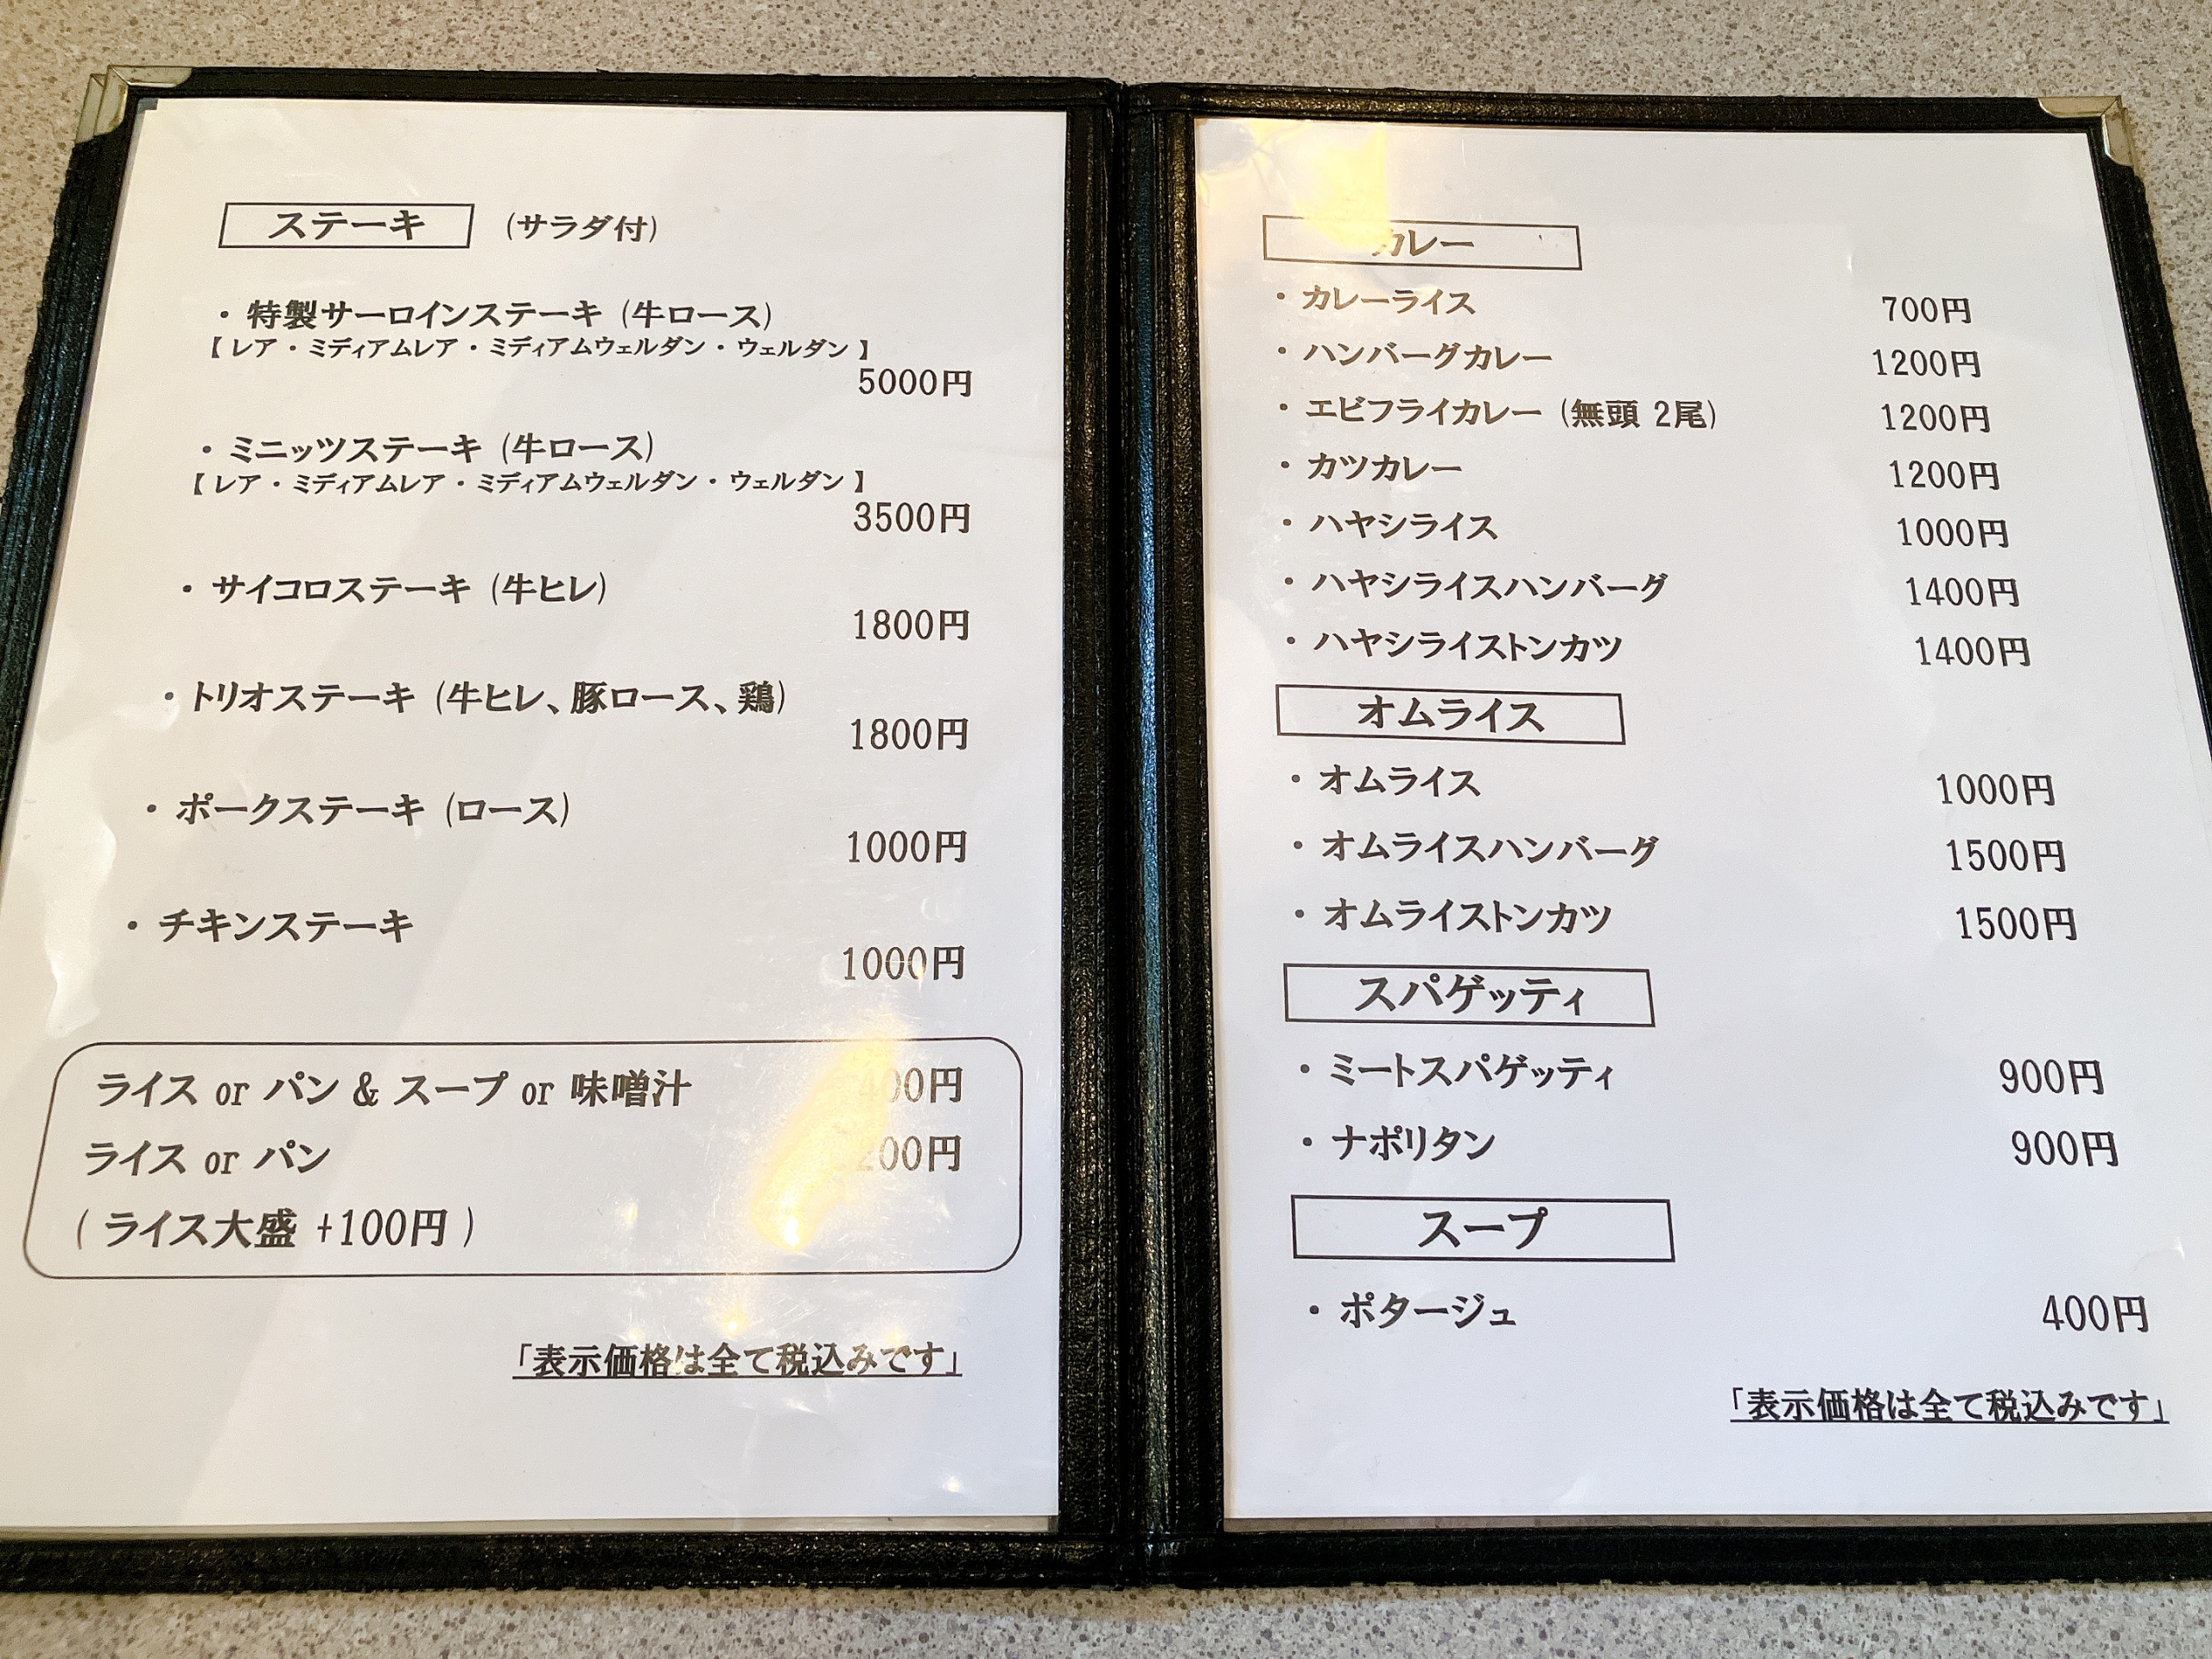 ステーキ (サラダ付)
・特製サーロインステーキ (牛ロース)
【レア・ミディアムレア・ミディアムウェルダン・ウェルダン】
5000円
・ミニッツステーキ (牛ロース)
【レア・ミディアムレア・ミディアムウェルダン・ウェルダン】
3500円
・サイコロステーキ (牛ヒレ)
1800円
・トリオステーキ (牛ヒレ、豚ロース、鶏)
1800円
・ポークステーキ (ロース)
1000円
・チキンステーキ
1000円
ライス or パン & スープ or 味噌汁 400円
ライス or パン 200円
( ライス大盛 +100円 )
「表示価格は全て税込みです」
カレー
・カレーライス 700円
・ハンバーグカレー 1200円
・エビフライカレー (無頭 2尾) 1200円
・カツカレー 1200円
・ハヤシライス 1000円
・ハヤシライスハンバーグ 1400円
・ハヤシライストンカツ 1400円
オムライス
・オムライス 1000円
・オムライスハンバーグ 1500円
・オムライストンカツ 1500円
スパゲッティ
・ミートスパゲッティ 900円
・ナポリタン 900円
スープ
・ポタージュ 400円
「表示価格は全て税込みです」